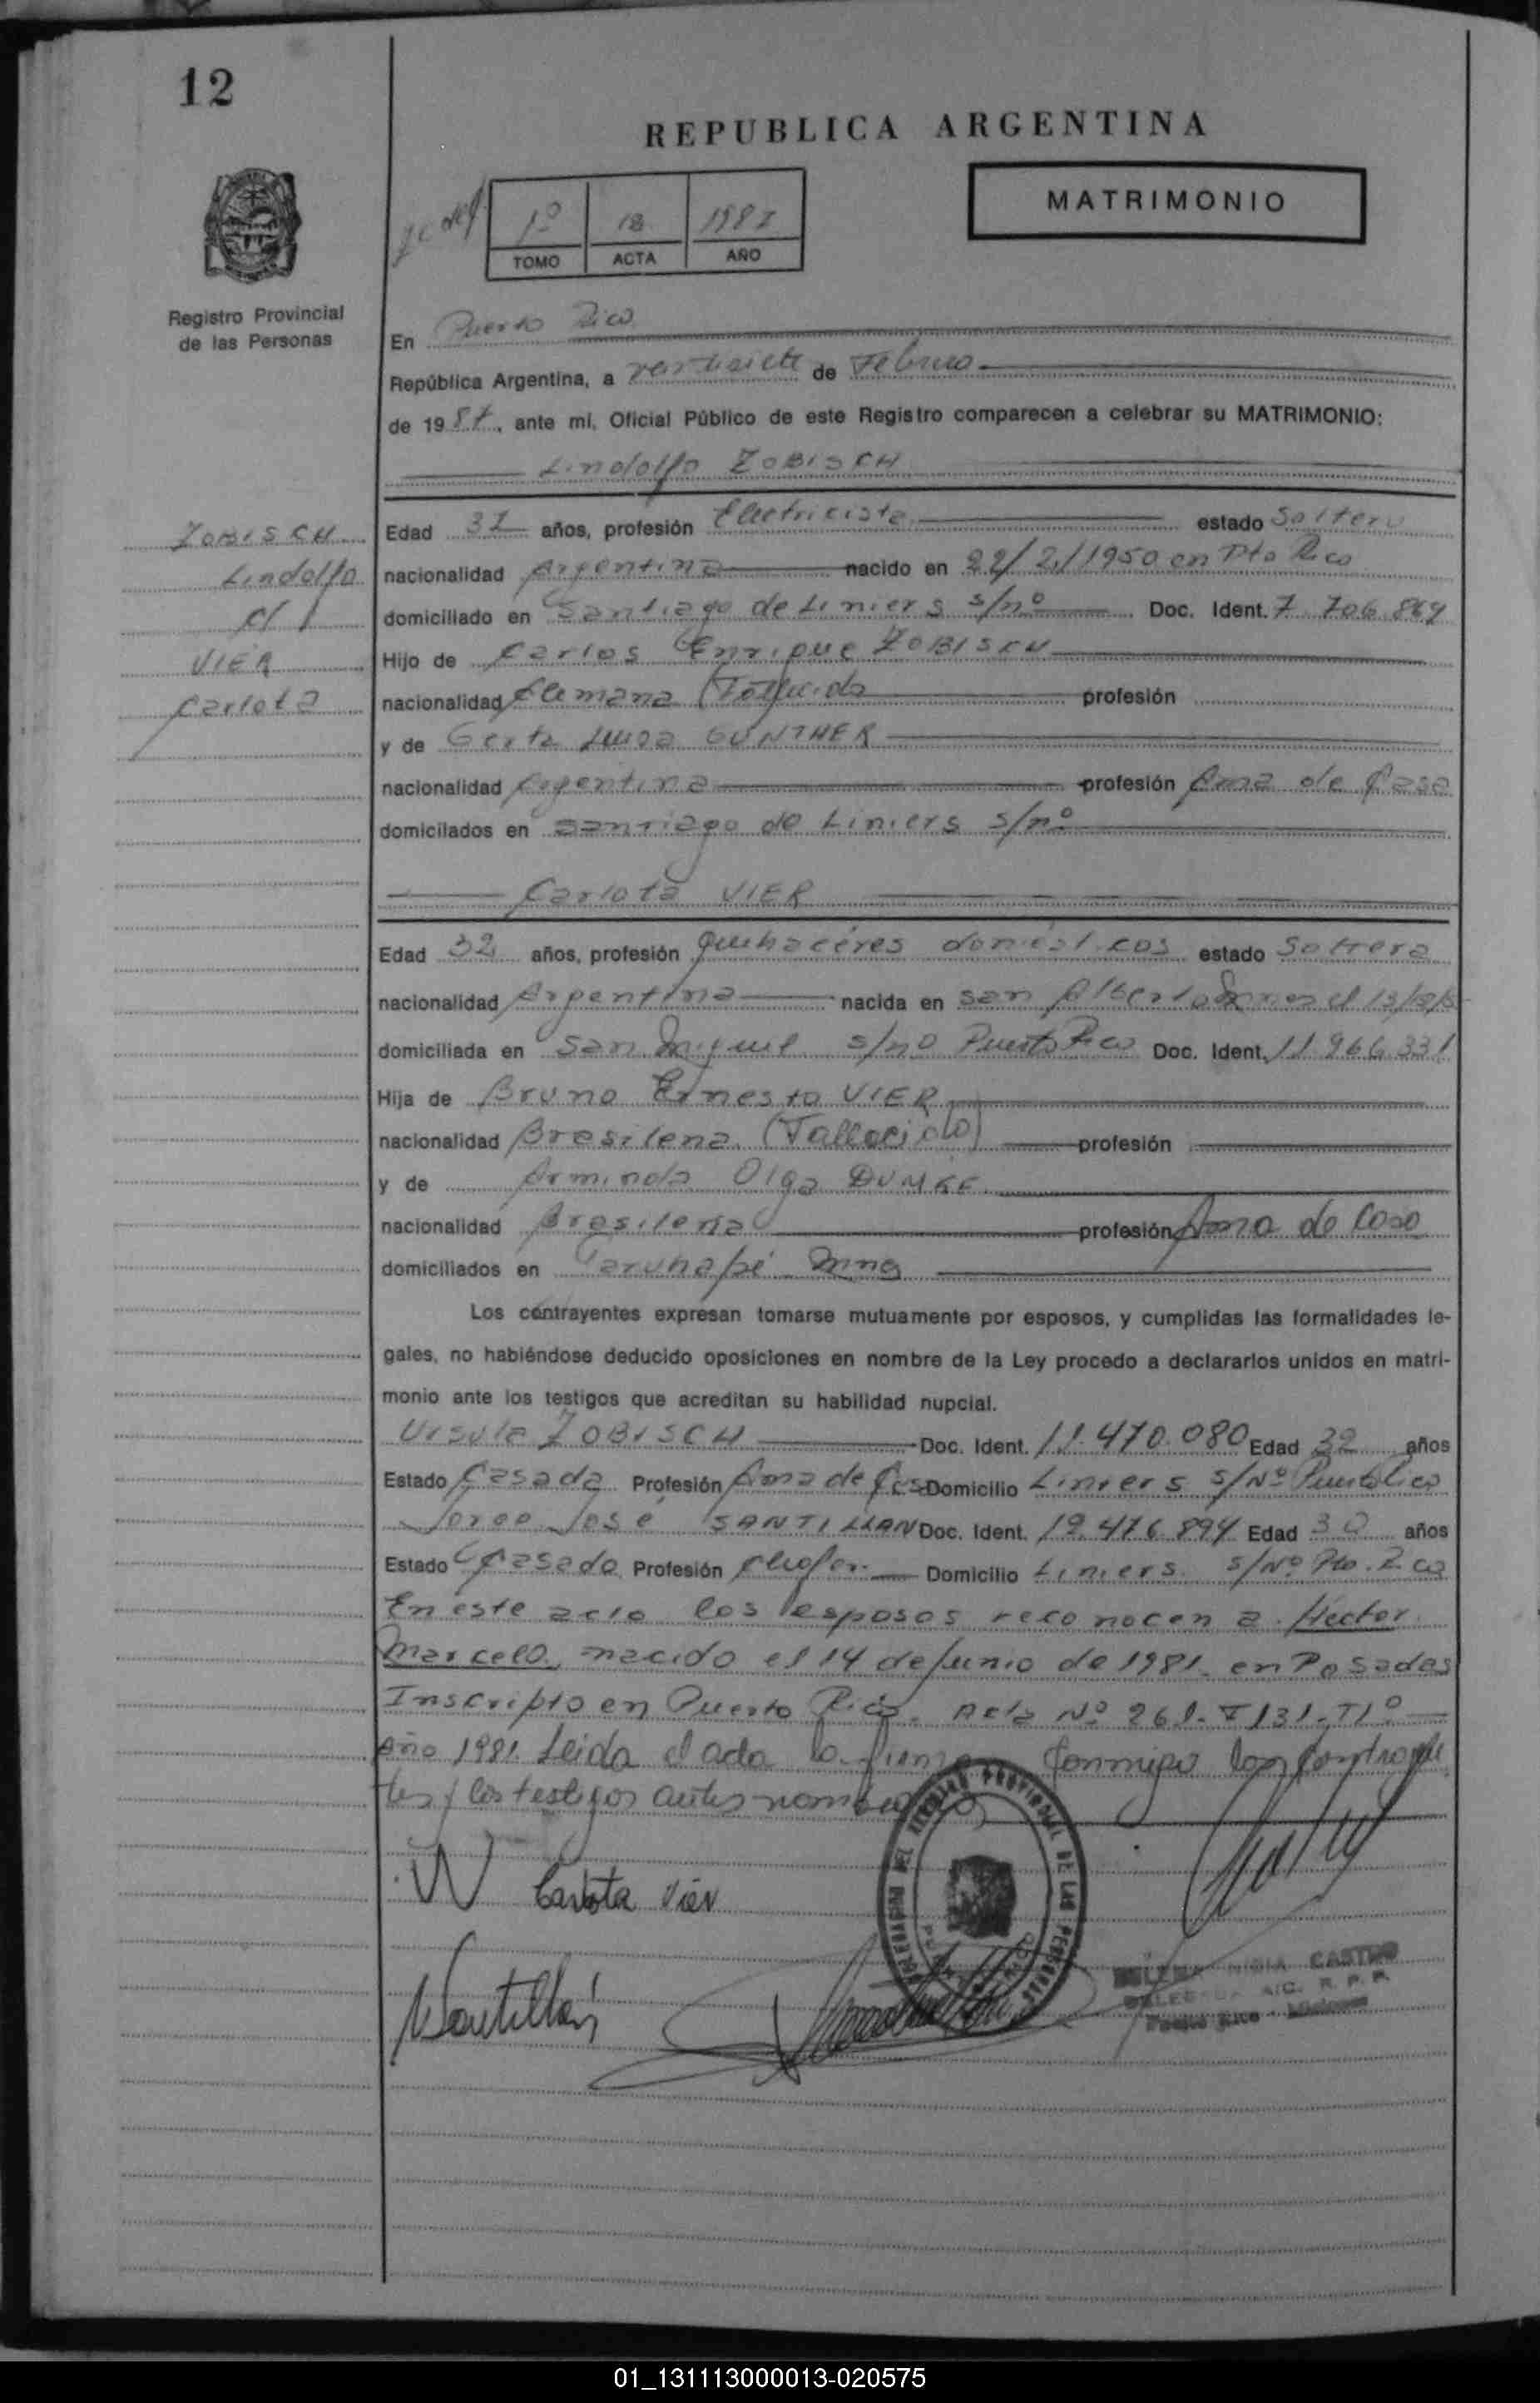 12
REPUBLICA ARGENTINA
MATRIMONIO
1º 12 1987
TOMO ACTA AÑO
Registro Provincial
de las Personas
En Puerto Rico
República Argentina, a veintisiete de Febrero
de 1987, ante mi, Oficial Público de este Registro comparecen a celebrar su MATRIMONIO:
Lindolfo ZOBISCH
ZOBISCH
Lindolfo
c/
VIER
Carlota
Edad 37 años, profesión Electricista estado Soltero
nacionalidad Argentina nacido en 22/2/1950 en Pto Rico
domiciliado en Santiago de Liniers s/nº Doc. Ident. 7.706.869
Hijo de Carlos Enrique ZOBISCH
nacionalidad Alemana profesión
y de Gerta Luisa GUNTHER
nacionalidad Argentina profesión Ama de Casa
domicilados en Santiago de Liniers s/nº
Carlota VIER
Edad 32 años, profesión quehaceres domésticos estado Soltera
nacionalidad Argentina nacida en San Alberto el
domiciliada en San Miguel s/nº Puerto Rico Doc. Ident. 11.966.331
Hija de Bruno Ernesto VIER
nacionalidad Brasilena (Fallecido) profesión
y de Arminda Olga DUMKE
nacionalidad Brasilena profesión Ama de Casa
domiciliados en Garuhapé Mnes
Los contrayentes expresan tomarse mutuamente por esposos, y cumplidas las formalidades le-
gales, no habiéndose deducido oposiciones en nombre de la Ley procedo a declararlos unidos en matri-
monio ante los testigos que acreditan su habilidad nupcial.
Ursula ZOBISCH Doc. Ident. 11.470.080 Edad 32 años
Estado Casada Profesión Ama de Casa Domicilio Liniers s/Nº Puerto Rico
Jorge José SANTILLAN Doc. Ident. 12.476.894 Edad 30 años
Estado Casado Profesión Chofer Domicilio Liniers s/Nº Pto. Rico
En este acto los esposos reconocen a Hector
Marcelo, nacido el 14 de Junio de 1981 en Posadas
Inscripto en Puerto Rico. Acta Nº 261- F131- T1º
Año 1981. Leida el acta la firman conmigo los contrayen
tes y los testigos antes nombrados
Carlota Vier
Santillán
DELEGACION DEL REGISTRO PROVINCIAL DE LAS PERSONAS
CASTRO
R. P. P.
Puerto Rico - Misiones
01_131113000013-020575